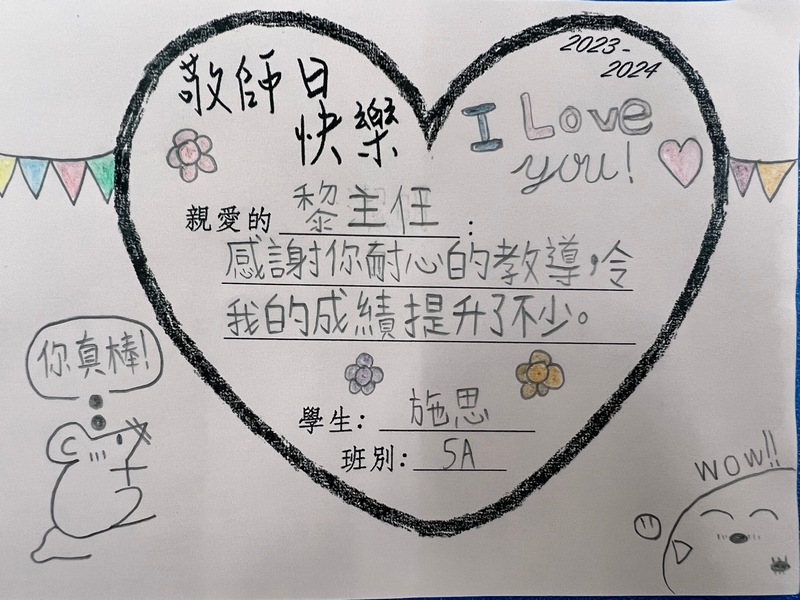 敬師日
快樂
2023-
2024
I Love
you!
親愛的 黎主任:
感謝你耐心的教導,令
我的成績提升了不少。
你真棒!
學生: 施思
班別: 5A
WOW!!